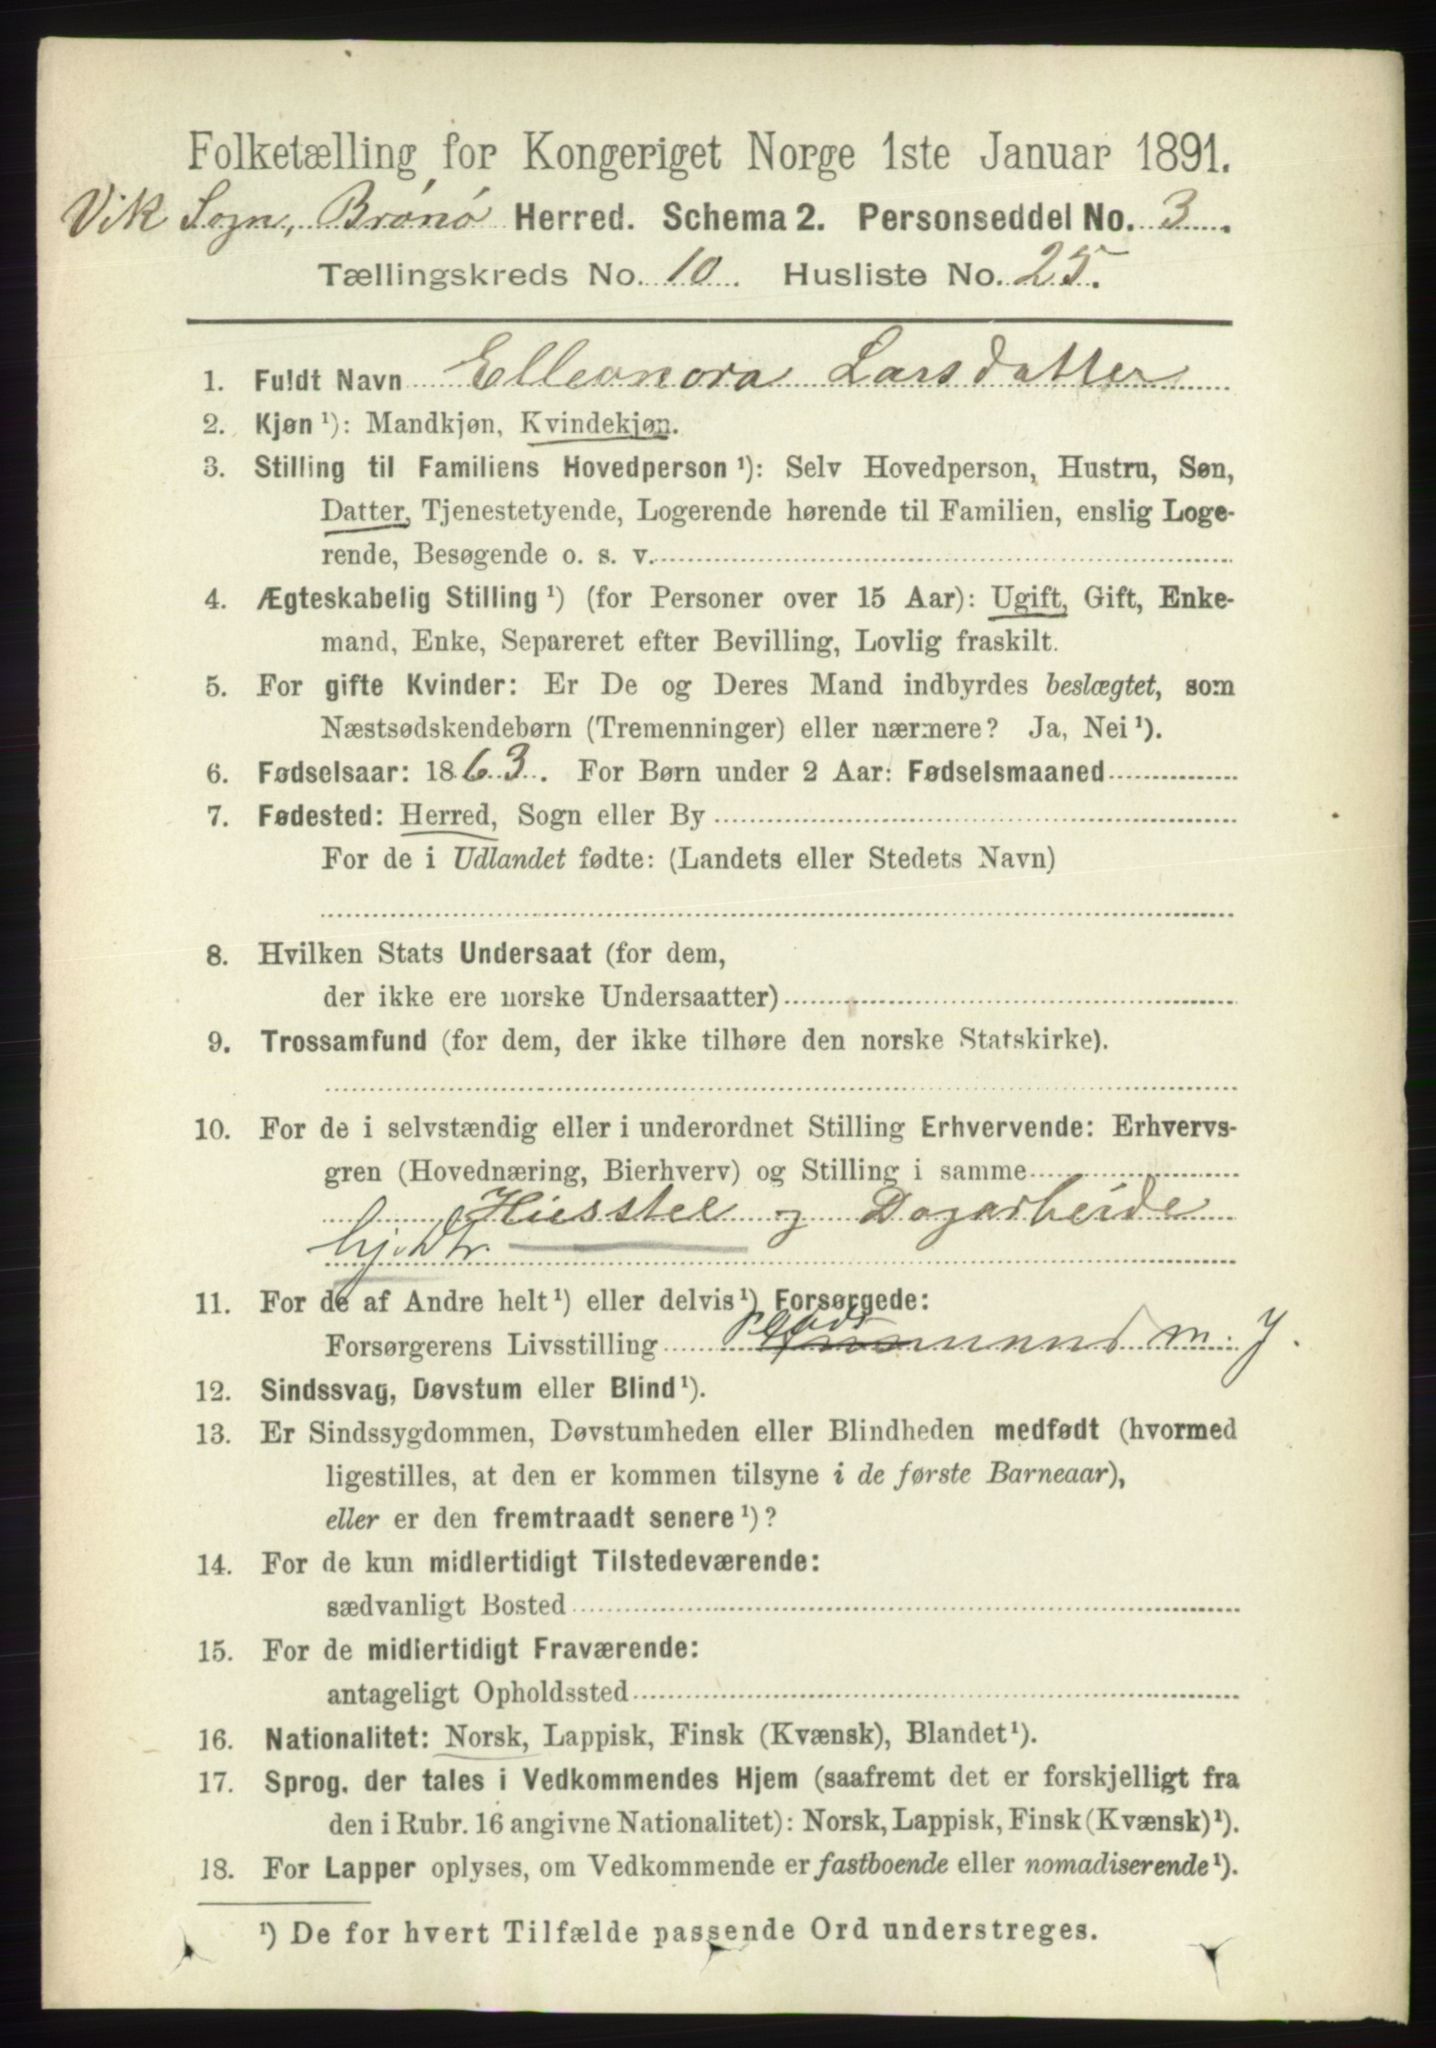 Folketælling for Kongeriget Norge 1ste Januar 1891.
Vik Sogn, Brønø Herred. Schema 2. Personseddel No. 3.
Tællingskreds No. 10. Husliste No. 25.
1. Fuldt Navn Elleonora Larsdatter
2. Kjøn ¹): Mandkjøn, Kvindekjøn.
3. Stilling til Familiens Hovedperson ¹): Selv Hovedperson, Hustru, Søn,
Datter, Tjenestetyende, Logerende hørende til Familien, enslig Loge-
rende, Besøgende o. s. v.
4. Ægteskabelig Stilling ¹) (for Personer over 15 Aar): Ugift, Gift, Enke-
mand, Enke, Separeret efter Bevilling, Lovlig fraskilt.
5. For gifte Kvinder: Er De og Deres Mand indbyrdes beslægtet, som
Næstsødskendebørn (Tremenninger) eller nærmere? Ja, Nei ¹).
6. Fødselsaar: 1863. For Børn under 2 Aar: Fødselsmaaned
7. Fødested: Herred, Sogn eller By
For de i Udlandet fødte: (Landets eller Stedets Navn)
8. Hvilken Stats Undersaat (for dem,
der ikke ere norske Undersaatter)
9. Trossamfund (for dem, der ikke tilhøre den norske Statskirke).
10. For de i selvstændig eller i underordnet Stilling Erhvervende: Erhvervs-
gren (Hovednæring, Bierhverv) og Stilling i samme
Husstel og Dagarbeide
11. For de af Andre helt ¹) eller delvis ¹) Forsørgede:
Forsørgerens Livsstilling m. J.
12. Sindssvag, Døvstum eller Blind ¹).
13. Er Sindssygdommen, Døvstumheden eller Blindheden medfødt (hvormed
ligestilles, at den er kommen tilsyne i de første Barneaar),
eller er den fremtraadt senere ¹)?
14. For de kun midlertidigt Tilstedeværende:
sædvanligt Bosted
15. For de midlertidigt Fraværende:
antageligt Opholdssted
16. Nationalitet: Norsk, Lappisk, Finsk (Kvænsk), Blandet ¹).
17. Sprog, der tales i Vedkommendes Hjem (saafremt det er forskjelligt fra
den i Rubr. 16 angivne Nationalitet): Norsk, Lappisk, Finsk (Kvænsk) ¹).
18. For Lapper oplyses, om Vedkommende er fastboende eller nomadiserende ¹).
¹) De for hvert Tilfælde passende Ord understreges.